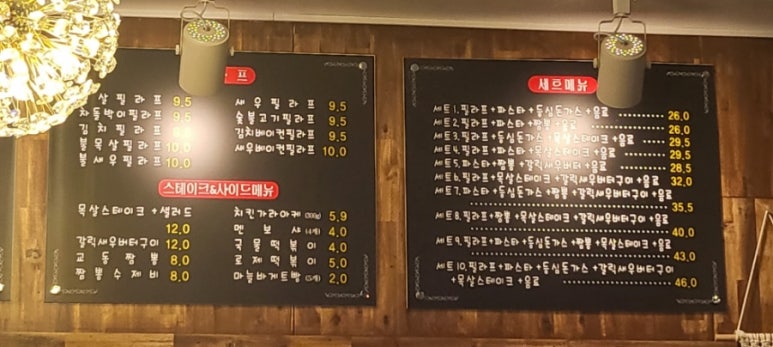 프
목살필라프 9.5
차돌박이필라프 9.5
김치필라프
불목살필라프 10.0
불새우필라프 10.0
새우필라프 9.5
숯불고기필라프 9.5
김치베이컨필라프 9.5
새우베이컨필라프 10.0
스테이크&사이드메뉴
목살스테이크+샐러드
12.0
갈릭새우버터구이 12.0
교동짬뽕 8.0
짬뽕수제비 8.0
치킨가라아케(300g) 5.9
멘보샤(4개) 4.0
국물떡볶이 4.0
로제떡볶이 5.0
마늘바게트빵(5개) 2.0
세트메뉴
세트1.필라프+파스타+등심돈가스+음료 26.0
세트2.필라프+파스타+짬뽕+음료 26.0
세트3.필라프+등심돈가스+목살스테이크+음료 29.5
세트4.필라프+파스타+목살스테이크+음료 29.5
세트5.파스타+짬뽕+갈릭새우버터구이+음료 28.5
세트6.필라프+목살스테이크+갈릭새우버터구이+음료 32.0
세트7.파스타+등심돈가스+짬뽕+갈릭새우버터구이+음료
35.5
세트8.필라프+짬뽕+목살스테이크+갈릭새우버터구이+음료
40.0
세트9.필라프+파스타+등심돈가스+짬뽕+목살스테이크+음료
43.0
세트10.필라프+파스타+등심돈가스+갈릭새우버터구이
+목살스테이크+음료 46.0